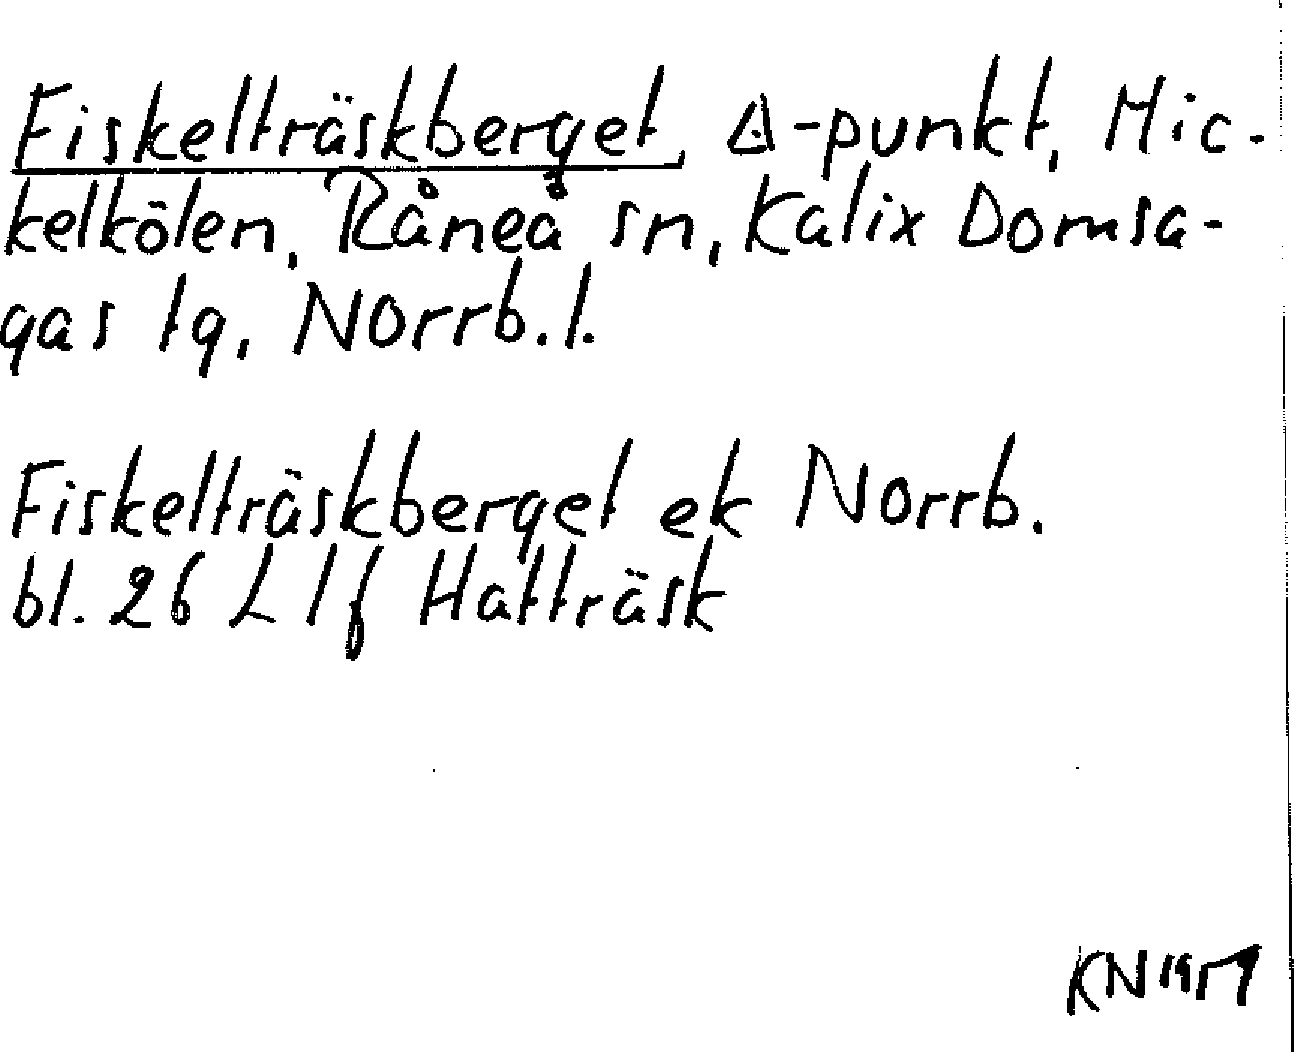 Fiskelträskberget, ∆-punkt, Mic-
kelkölen, Råneå sn, Kalix Domsa-
gas tg, Norrb. l.
Fiskelträskberget ek Norrb.
bl. 26 L 1f Hatträsk
KN